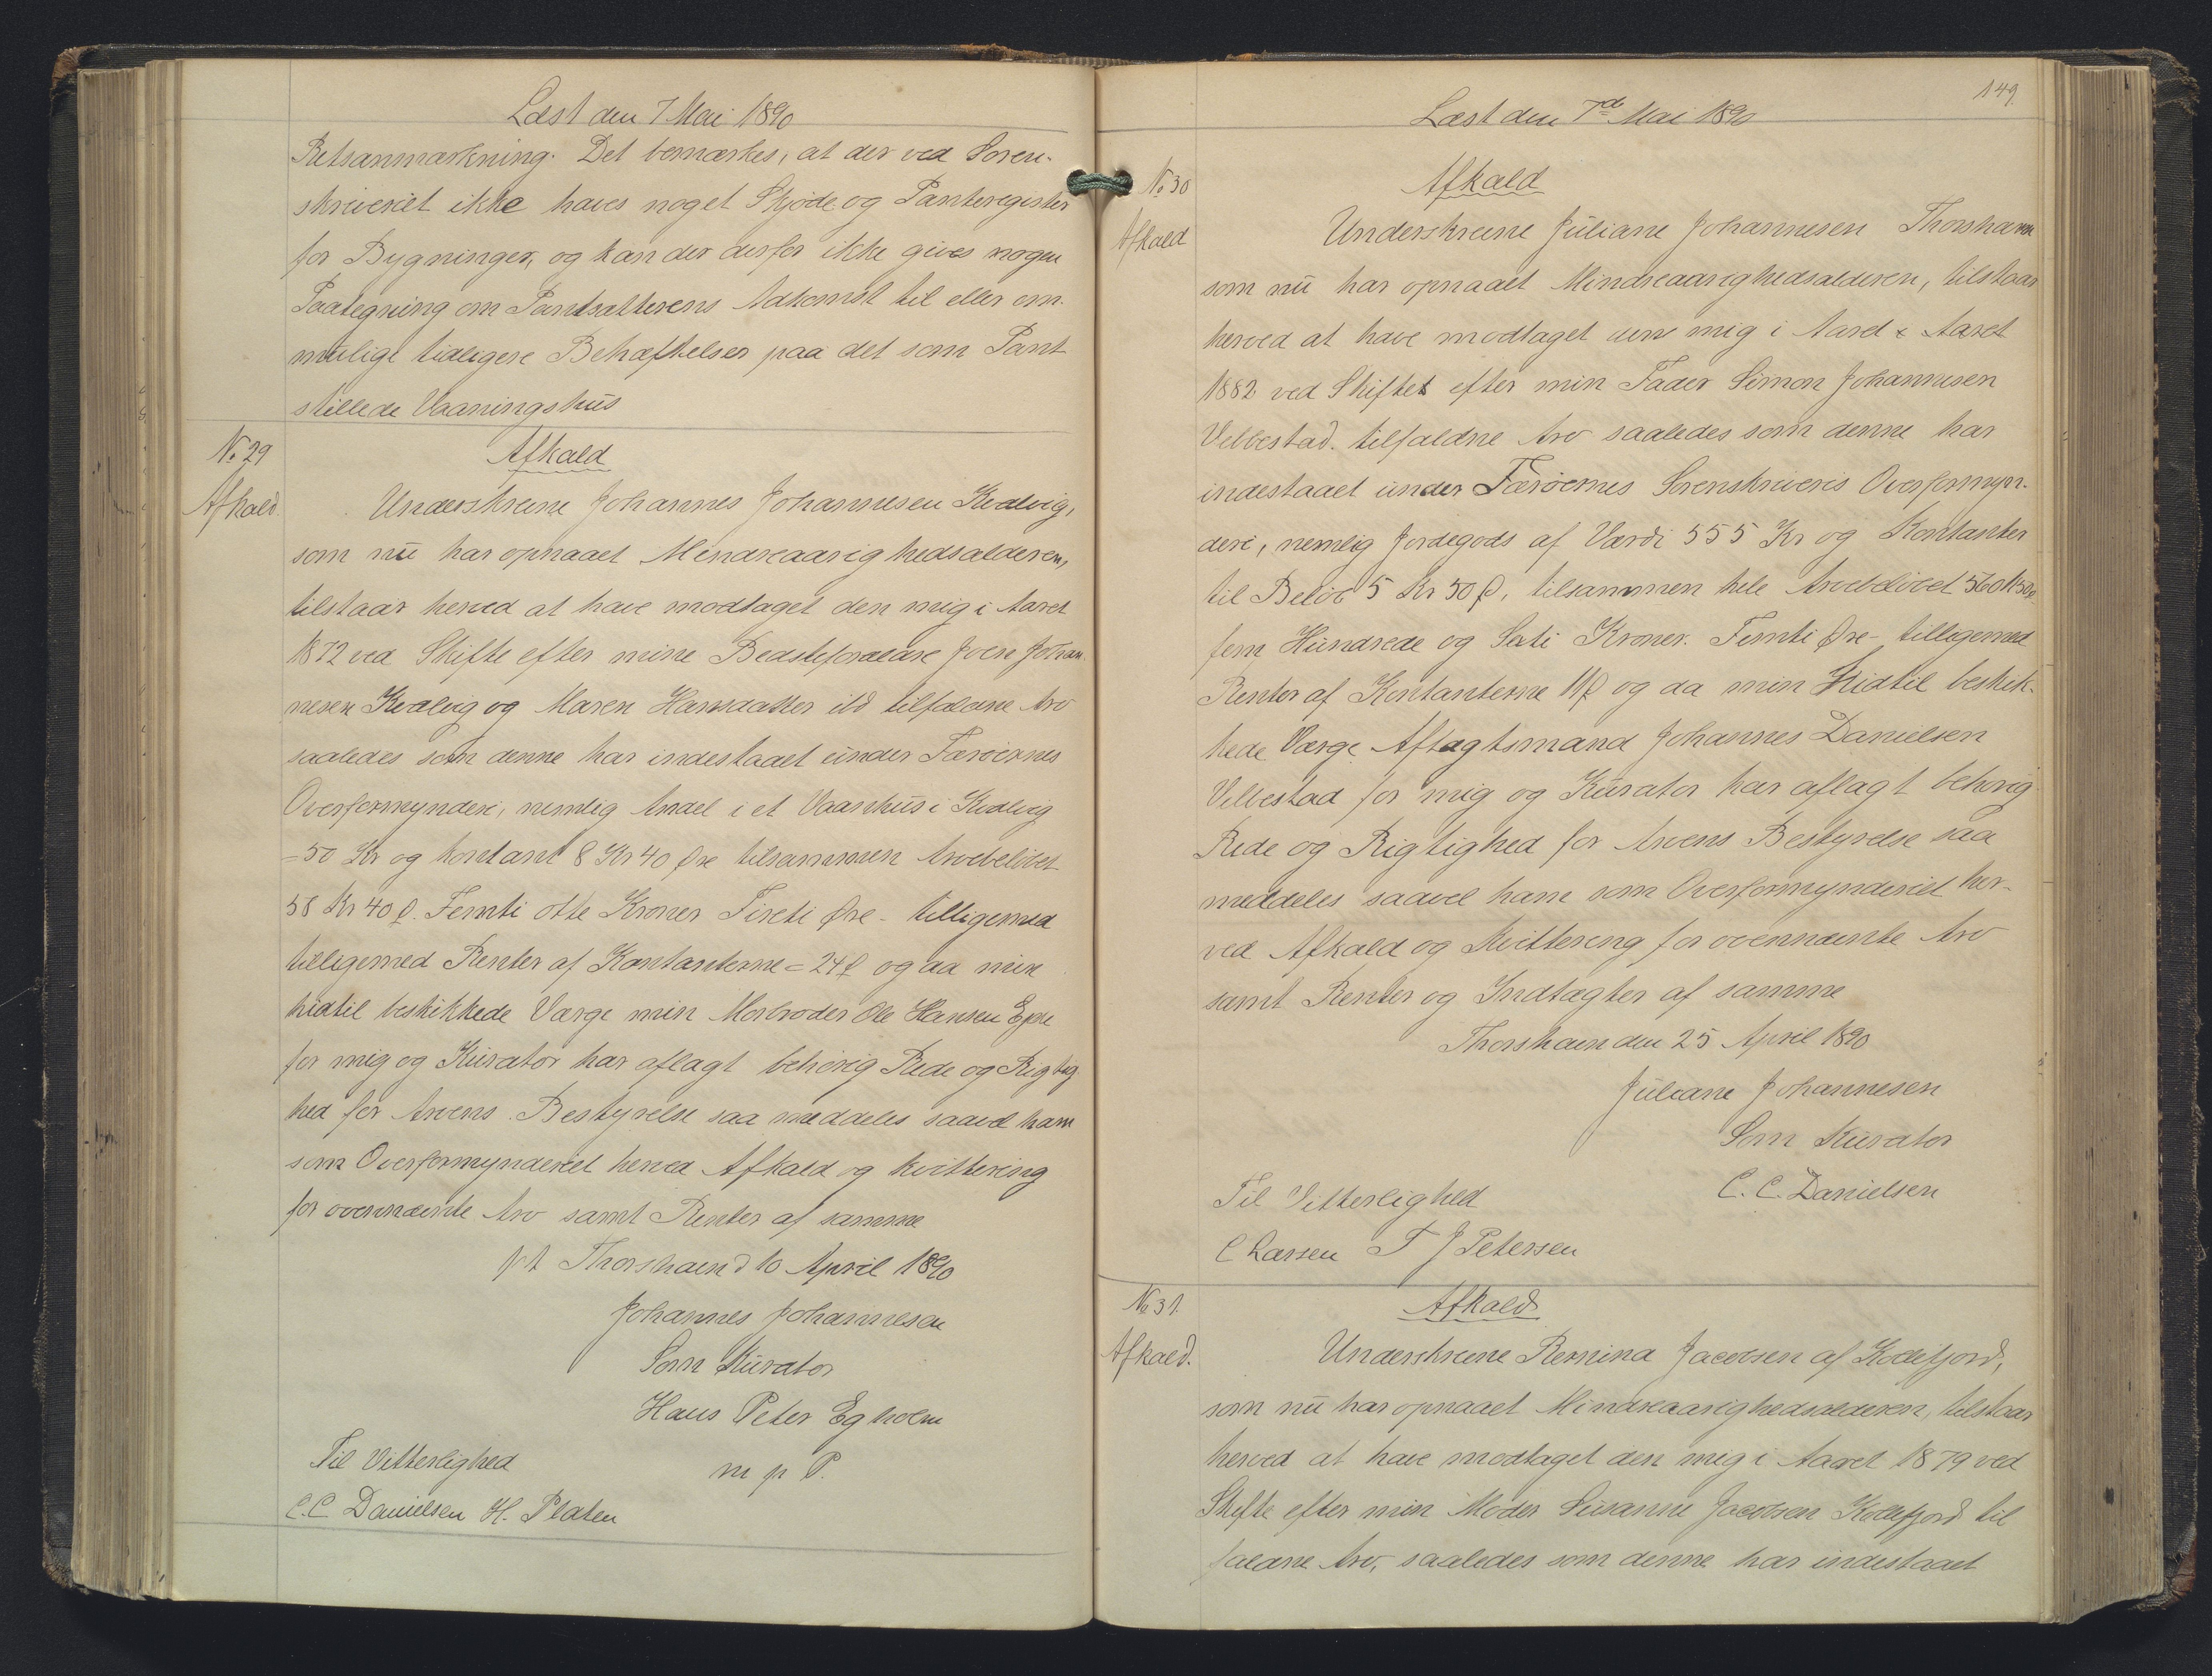 Læst den 7 Mai 1890
Retsanmærkning. Det bemærkes, at der ved Soren-
skriveriet ikke haves noget Skjøde og Panteregister
for Bygninger, og kan der derfor ikke gives nogen
Paategning om Pantsætterens Adkomst til eller om
mulige tidligere Behæftelser paa det som Pant
stillede Vaaningshus
No 29
Afkald
Afkald
Underskrevne Johannes Johannesen Kvalvig,
som nu har opnaaet Mindreaarighedsalderen,
tilstaar herved at have modtaget den mig i Aaret
1872 ved Skifte efter mine Bedsteforældre Joen Johan
nesen Kvalvig og Maren Hansdatter ibd tilfaldne Arv
saaledes som denne har indestaaet under Færøernes
Overformynderi, nemlig Andel i et Vaanhus i Kvalvig
=50 Kr og kontant 8 Kr 40 Øre tilsammen Arvebeløbet
58 Kr 40 Ø. Femti otte Kroner Fireti Øre - tilligemed
tilligemed Renter af Kontanterne = 24 Ø og da min
hidtil beskikkede Værge min Morbroder Ole Hansen Ejde
for mig og Kurator har aflagt behørig Rede og Rigtig
hed for Arvens Bestyrelse saa meddeles saavel ham
som Overformynderiet herved Afkald og kvittering
for ovennævnte Arv samt Renter af samme
pt Thorshavn d 10 April 1890
Johannes Johannesen
Som Kurator
Hans Peter Egholm
m p P.
Til Vitterlighed
C.C Danielsen H. Platen
149
Læst den 7de Mai 1890
No 30
Afkald
Afkald
Underskrevne Juliane Johannesen Thorshavn
som nu har opnaaet Mindreaarighedsalderen, tilstaar
herved at have modtaget den mig i Aaret Aaret
1882 ved Skiftet efter min Fader Simon Johannesen
Velbestad. tilfaldne Arv saaledes som denne har
indestaaet under Færøernes Sorenskriveris Overformyn-
deri, nemlig Jordegods af Værdi 555 Kr og Kontanter
til Beløb 5 Kr 50 Ø, tilsammen hele Arvebeløbet 560 K 50 Ø
fem Hundrede og Sexti Kroner. Femti Øre - tilligemed
Renter af Kontanterne 11 Ø og da min Hidtil beskik-
kede Værge Aftægtsmand Johannes Danielsen
Velbestad for mig og Kurator har aflagt behørig
Rede og Rigtighed for Arvens Bestyrelse saa
meddeles saavel ham som Overformynderiet her-
ved Afkald og Kvittering for ovennævnte Arv
samt Renter og Indtægter af samme
Thorshavn den 25 April 1890
Juliane Johannesen
Som Kurator
C. C. Danielsen
Til Vitterlighed
C Larsen T J Petersen
No 31.
Afkald.
Afkald
Underskrevne Remina Jacobsen af Kollefjord,
som nu har opnaaet Mindreaarighedsalderen, tilstaar
herved at have modtaget den mig i Aaret 1879 ved
Skifte efter min Moder Susanne Jacobsen Kollefjord til
faldne Arv, saaledes som denne har indestaaet